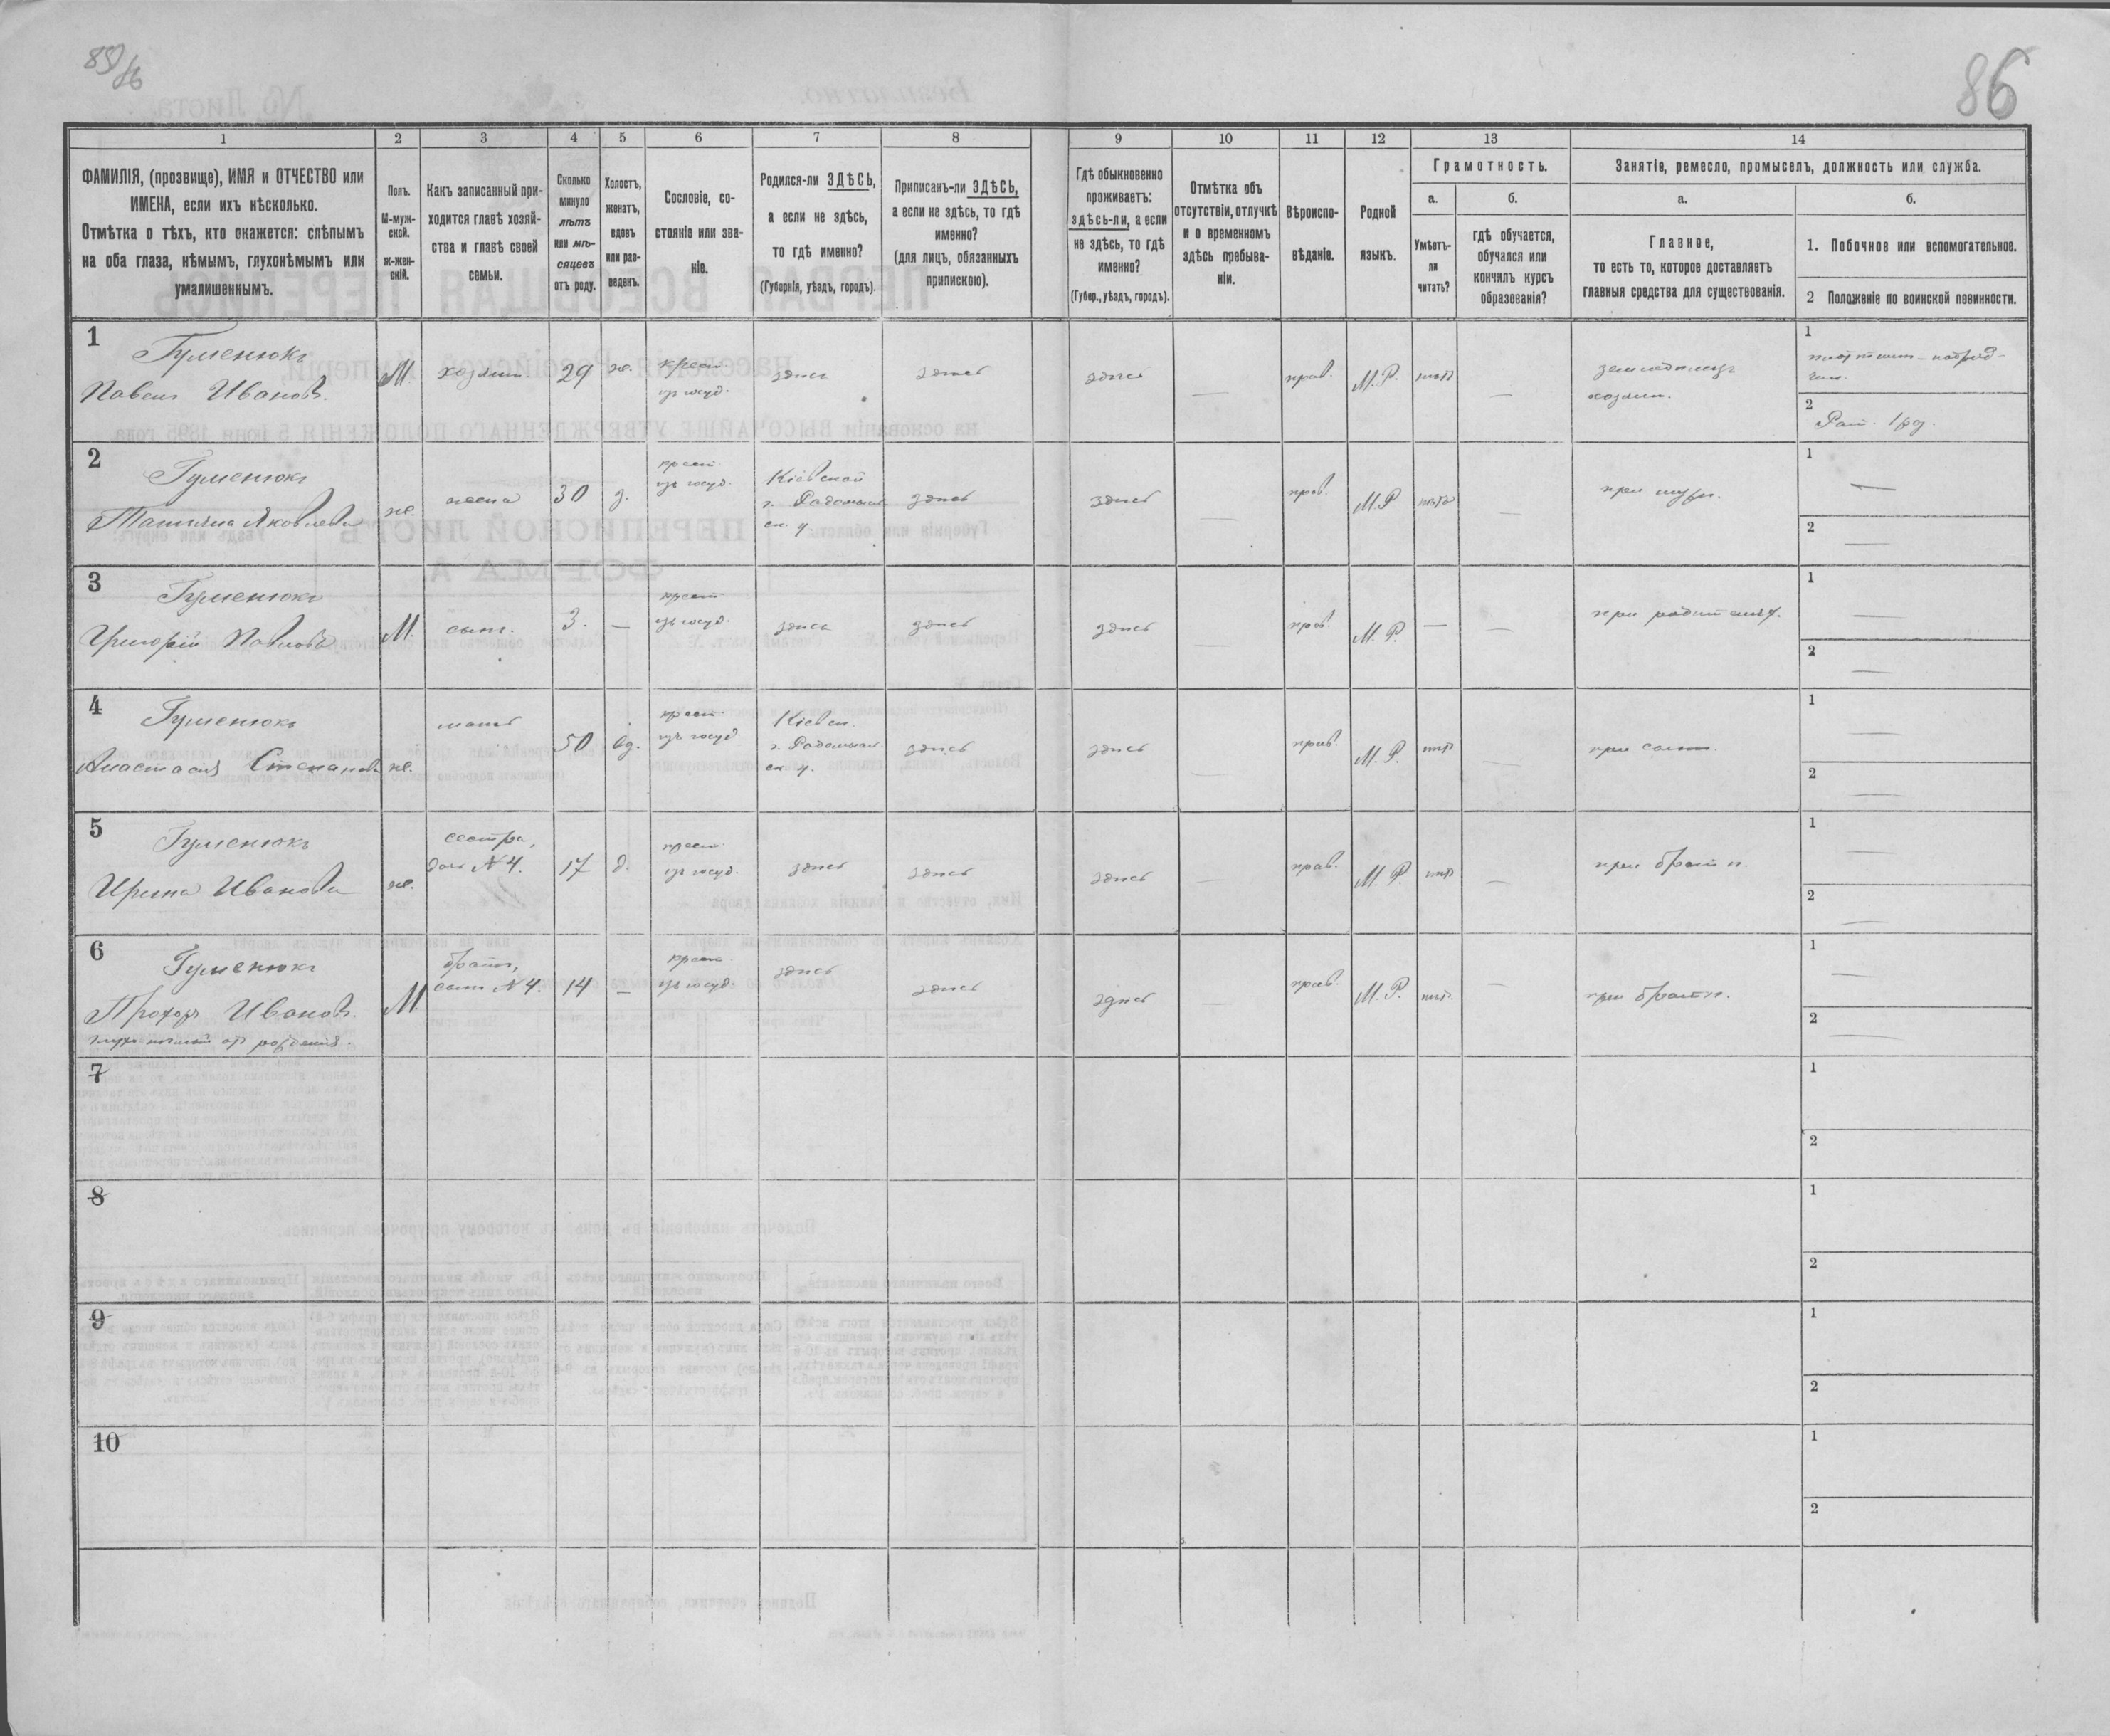 85/86
86
1
2
3
4
5
6
7
8
9
10
11
12
13
14
ФАМИЛІЯ, (прозвище), ИМЯ и ОТЧЕСТВО или
ИМЕНА, если ихъ нѣсколько.
Отмѣтка о тѣхъ, кто окажется: слѣпымъ
на оба глаза, нѣмымъ, глухонѣмымъ или
умалишеннымъ.
Полъ.
М-муж-
ской.
ж-жен-
скій.
Какъ записанный при-
ходится главѣ хозяй-
ства и главѣ своей
семьи.
Сколько
минуло
лѣтъ
или мѣ-
сяцевъ
отъ роду.
Холостъ,
женатъ,
вдовъ
или раз-
веденъ.
Сословіе, со-
стояніе или зва-
ніе.
Родился-ли ЗДѢСЬ,
а если не здѣсь,
то гдѣ именно?
(Губернія, уѣздъ, городъ).
Приписанъ-ли ЗДѢСЬ,
а если не здѣсь, то гдѣ
именно?
(для лицъ, обязанныхъ
припискою).
Гдѣ обыкновенно
проживаетъ:
здѣсь-ли, а если
не здѣсь, то гдѣ
именно?
(Губер., уѣздъ, городъ).
Отмѣтка объ
отсутствіи, отлучкѣ
и о временномъ
здѣсь пребыва-
ніи.
Вѣроиспо-
вѣданіе.
Родной
языкъ.
Грамотность.
а.
Умѣетъ-
ли
читать?
б.
гдѣ обучается,
обучался или
кончилъ курсъ
образованія?
Занятіе, ремесло, промыселъ, должность или служба.
а.
Главное,
то есть то, которое доставляетъ
главныя средства для существованія.
б.
1. Побочное или вспомогательное.
2 Положеніе по воинской повинности.
1
Гуменюкъ
Павелъ Ивановъ.
М
хозяин.
29
ж.
крест.
изъ госуд.
здѣсь
здѣсь
здѣсь
—
прав.
М. Р.
нѣтъ
—
земледѣлецъ
хозяин.
1
2
Рат. 1 раз.
2
Гуменюкъ
Татьяна Яковлева
же.
жена
30
з.
крест.
изъ госуд.
Кіевской
г. Радомысл
ск. у.
здѣсь
здѣсь
—
прав.
М. Р
нѣтъ
—
при мужѣ.
1
—
2
—
3
Гуменюкъ
Григорій Павловъ
М.
сынъ.
3.
—
крест.
изъ госуд.
здѣсь
здѣсь
здѣсь
—
прав.
М. Р.
—
—
при родителях.
1
—
2
—
4
Гуменюкъ
Анастасія Степанова
же.
мать
50
вд.
крест.
изъ госуд
Кіевск.
г. Радомысл.
ск. у.
здѣсь
здѣсь
—
прав.
М. Р.
нѣтъ
—
при сынѣ.
1
—
2
—
5
Гуменюкъ
Ирина Иванова
же.
сестра,
дочь N 4.
17
д.
крест.
изъ госуд.
здѣсь
здѣсь
здѣсь
—
прав.
М. Р.
нѣтъ
—
при братѣ.
1
—
2
—
6
Гуменюкъ
Прохоръ Ивановъ.
глухонѣмый отъ рожденія.
М.
братъ,
сынъ N 4.
14
—
крест.
изъ госуд.
здѣсь
здѣсь
здѣсь
—
прав.
М. Р.
нѣт.
—
при братѣ.
1
—
2
—
7
1
2
8
1
2
9
1
2
10
1
2